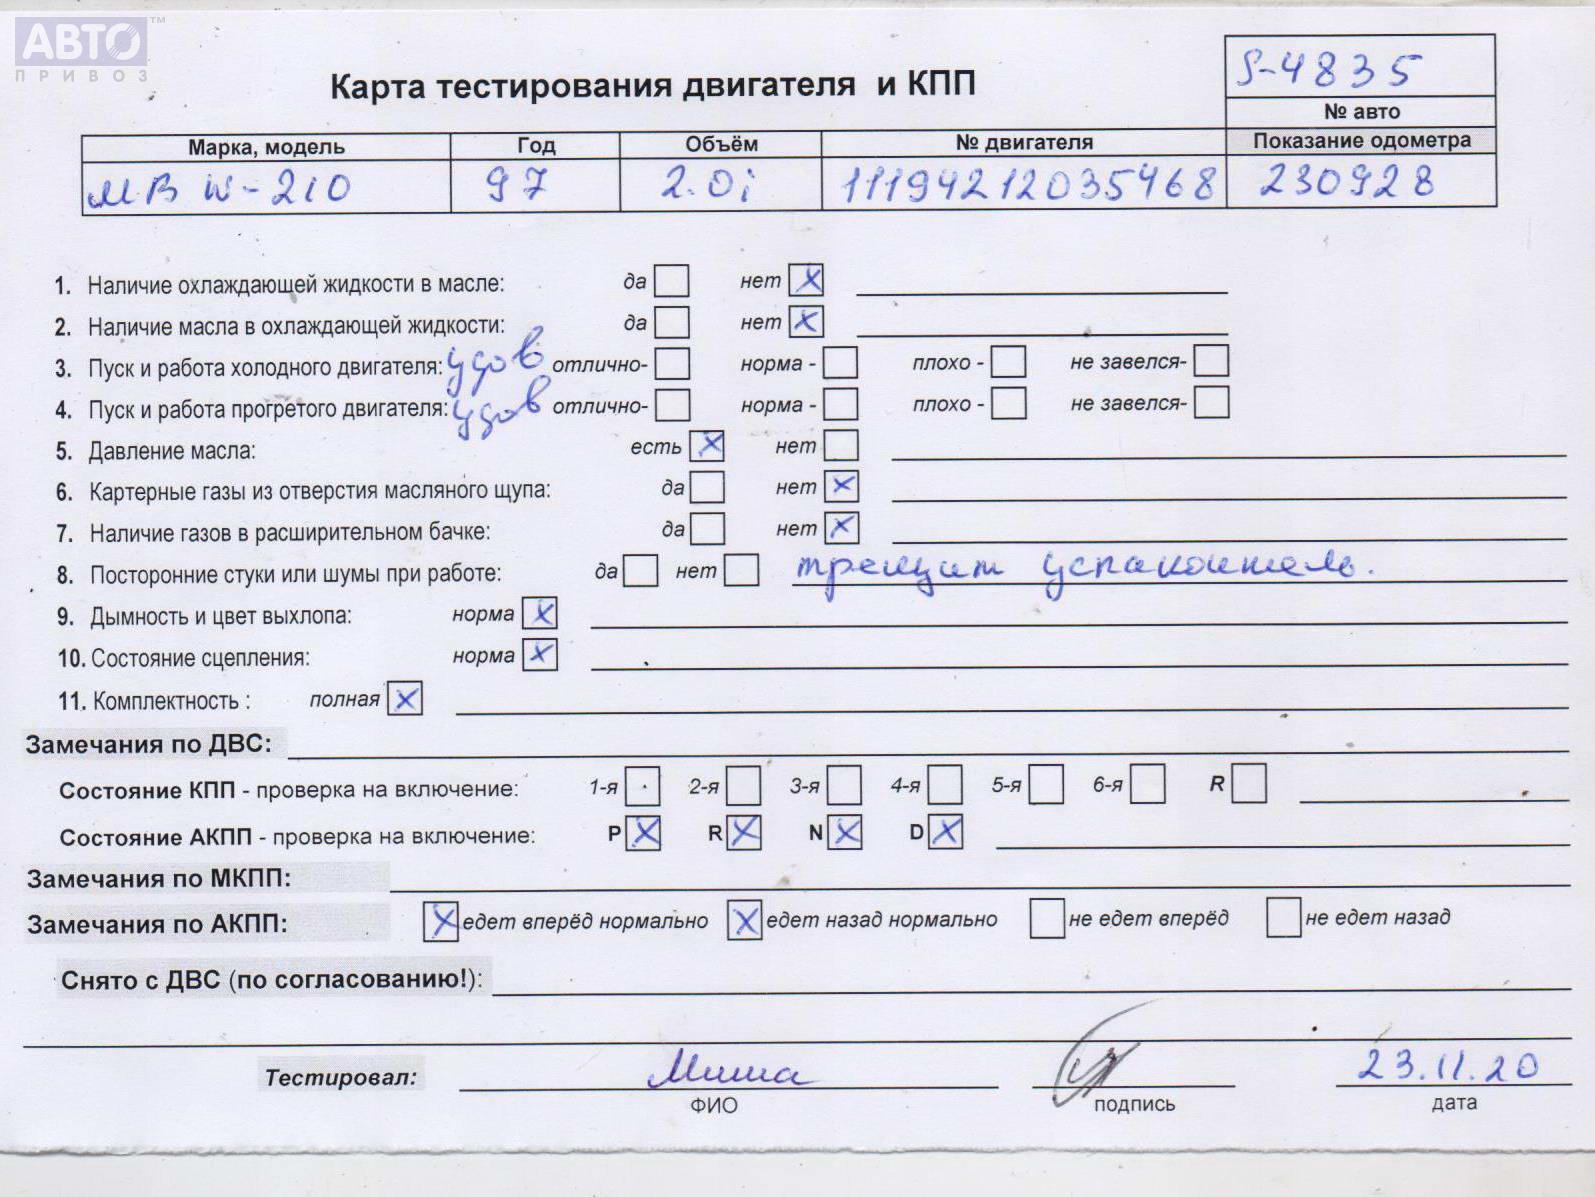 АВТО™
ПРИВОЗ
S-4835
Карта тестирования двигателя и КПП
№ авто
Марка, модель Год Объём № двигателя Показание одометра
МВ W-210 97 2.0i 11194212035468 230928
1. Наличие охлаждающей жидкости в масле: да нет X
2. Наличие масла в охлаждающей жидкости: да нет X
3. Пуск и работа холодного двигателя: удов отлично- норма - плохо - не завелся-
4. Пуск и работа прогретого двигателя: удов отлично- норма - плохо - не завелся-
5. Давление масла: есть X нет
6. Картерные газы из отверстия масляного щупа: да нет X
7. Наличие газов в расширительном бачке: да нет X
8. Посторонние стуки или шумы при работе: да нет трещит успакоитель.
9. Дымность и цвет выхлопа: норма X
10. Состояние сцепления: норма X
11. Комплектность : полная X
Замечания по ДВС:
Состояние КПП - проверка на включение: 1-я 2-я 3-я 4-я 5-я 6-я R
Состояние АКПП - проверка на включение: P X R X N X D X
Замечания по МКПП:
Замечания по АКПП: X едет вперёд нормально X едет назад нормально не едет вперёд не едет назад
Снято с ДВС (по согласованию!):
Тестировал: Миша 23.11.20
ФИО подпись дата